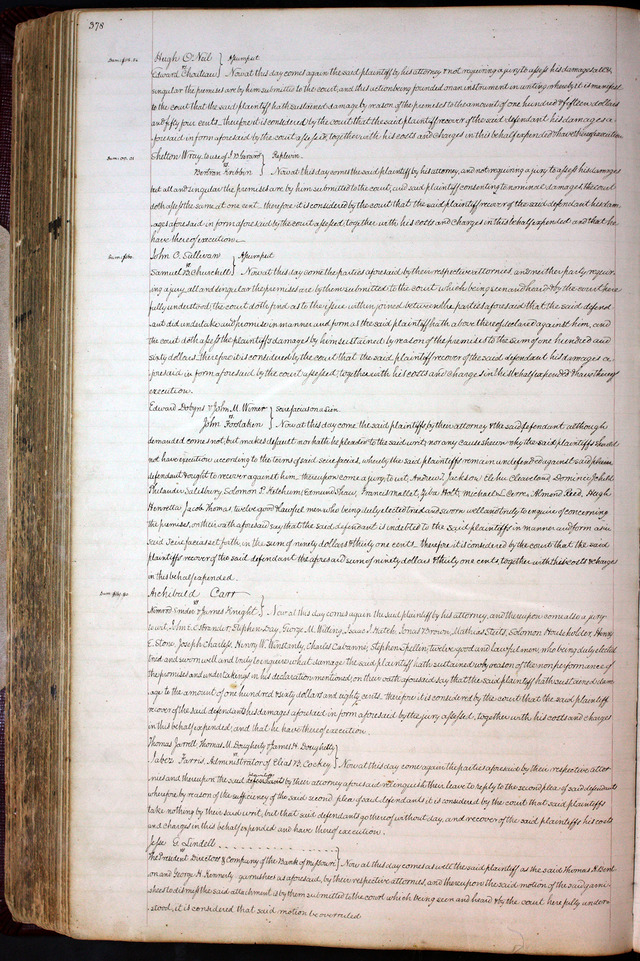 378
Hugh O'Neil } Assumpsit
vs
Edward Chouteau } Now at this day comes again the said plaintiff by his attorney & not requiring a jury to assess his damages all &
singular the premises are by him submitted to the court, and this action being founded on an instrument in writing whereby it is manifest
to the court that the plaintiff hath sustained damage by reason of the premises to the amount of one hundred & fifteen dollars
and fifty four cents. therefore it is considered by the court that the said plaintiff recover of the said defendant his damages a-
foresaid in form aforesaid by the court assessed, together with his costs and charges in this behalf expended & have thereof execution
Shelton Wray, to use of } Replevin.
vs
} Now at this day comes the said plaintiff by his attorney, and not requiring a jury to assess his damages
but all and singular the premises are by him submitted to the court, and said plaintiff consenting to nominal damages the court
doth assess the same at one cent. therefore it is considered by the court that the said plaintiff recover of the said defendant his dam-
ages aforesaid in form aforesaid by the court assessed, together with his costs and charges in this behalf expended and that he
have thereof execution.
John O. Sullivan } Assumpsit
vs
Samuel B Churchill } Now at this day come the parties aforesaid by their respective attornies and neither party requir-
ing a jury, all and singular the premises are by them submitted to the court which being seen and heard & by the court here
fully understood, the court doth find as to the issue within joined between the parties aforesaid that the said defend-
ant did undertake and promise in manner and form as the said plaintiff hath above thereof declared against him, and
the court doth assess the plaintiff's damages by him sustained by reason of the premises to the sum of one hundred and
sixty dollars. therefore it is considered by the court that the said plaintiff recover of the said defendant his damages a-
foresaid in form aforesaid by the court assessed, together with his costs and charges in this behalf expended & have thereof
execution.
Edward Dobyns & John M. Wimer } Scire facias on a lien
vs
John } Now at this day come the said plaintiffs by their attorney & the said defendant although
demanded comes not, but makes default nor hath he pleaded to the said writ, nor any cause shewn why the said plaintiffs should
not have execution according to the terms of said scire facias, whereby the said plaintiffs remain undefended against said
defendant & ought to recover against him. thereupon come a jury to wit, Andrew L Jackson, Cleaveland, Dominic
Philander Salisbury, Solomon P. Ketchum, Edmund Shaw, Francis Mallet, Ziba Holt, Michael Almond Reed, Hugh
Henretta, Jacob Thomas twelve good & lawful men who being duly elected tried and sworn well and truly to enquire of concerning
the premises, on their oath aforesaid say that the said defendant is indebted to the said plaintiffs in manner and form as in
said Scire facias set forth, in the sum of ninety dollars & thirty one cents. therefore it is considered by the court that the said
plaintiffs recover of the said defendant the aforesaid sum of ninety dollars & thirty one cents, together with their costs & charges
in this behalf expended.
Archibald Carr
vs
& James Knight } Now at this day comes again the said plaintiff by his attorney, and thereupon come also a jury
to wit, John C. Ostrander, Stephen Gay, George M. Isaac I. Hatch, Jonas Brown, Mathias Steitz, Solomon Householder, Henry
E. Stone, Joseph Charless, Henry W. Winstanly, Charles Cabanne, Stephen twelve good and lawful men, who being duly elected
tried and sworn well and truly to enquire what damage the said plaintiff hath sustained by reason of the nonperformance of
the promises and undertakings in his declaration mentioned, on their oath aforesaid say that the said plaintiff hath sustained dam-
age to the amount of one hundred & sixty dollars and eighty cents. therefore it is considered by the court that the said plaintiff
recover of the said defendants his damages aforesaid in form aforesaid by the jury assessed, together with his costs and charges
in this behalf expended; and that he have thereof execution.
Thomas Jarrell, Thomas M. Dougherty & James H. Dougherty }
vs
Jabez Farris Administrator of Elias B. Cockey } Now at this day come again the parties aforesaid by their respective attor-
nies and thereupon the said plaintiffs by their attorney aforesaid relinquish their leave to reply to the second plea of said defendants
wherefore by reason of the sufficiency of the said second plea of said defendants it is considered by the court that said plaintiffs
take nothing by their said writ, but that said defendants go thereof without day, and recover of the said plaintiffs his costs
and charges in this behalf expended and have thereof execution.
Jesse G. Lindell
vs
The President Directors & Company of the Bank of Missouri } Now at this day comes as well the said plaintiff as the said Thomas H Bent-
on and George H. Kennerly garnishees as aforesaid, by their respective attornies, and thereupon the said motion of the said garni-
shees to dismiss the said attachment is by them submitted to the court which being seen and heard & by the court here fully under-
stood, it is considered that said motion be overruled